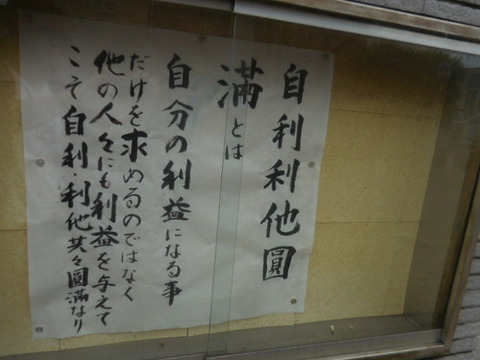 自利利他圓
満とは
自分の利益になる事
だけを求めるのではなく
他の人々にも利益を与えて
こそ自利・利他共々圓満なり